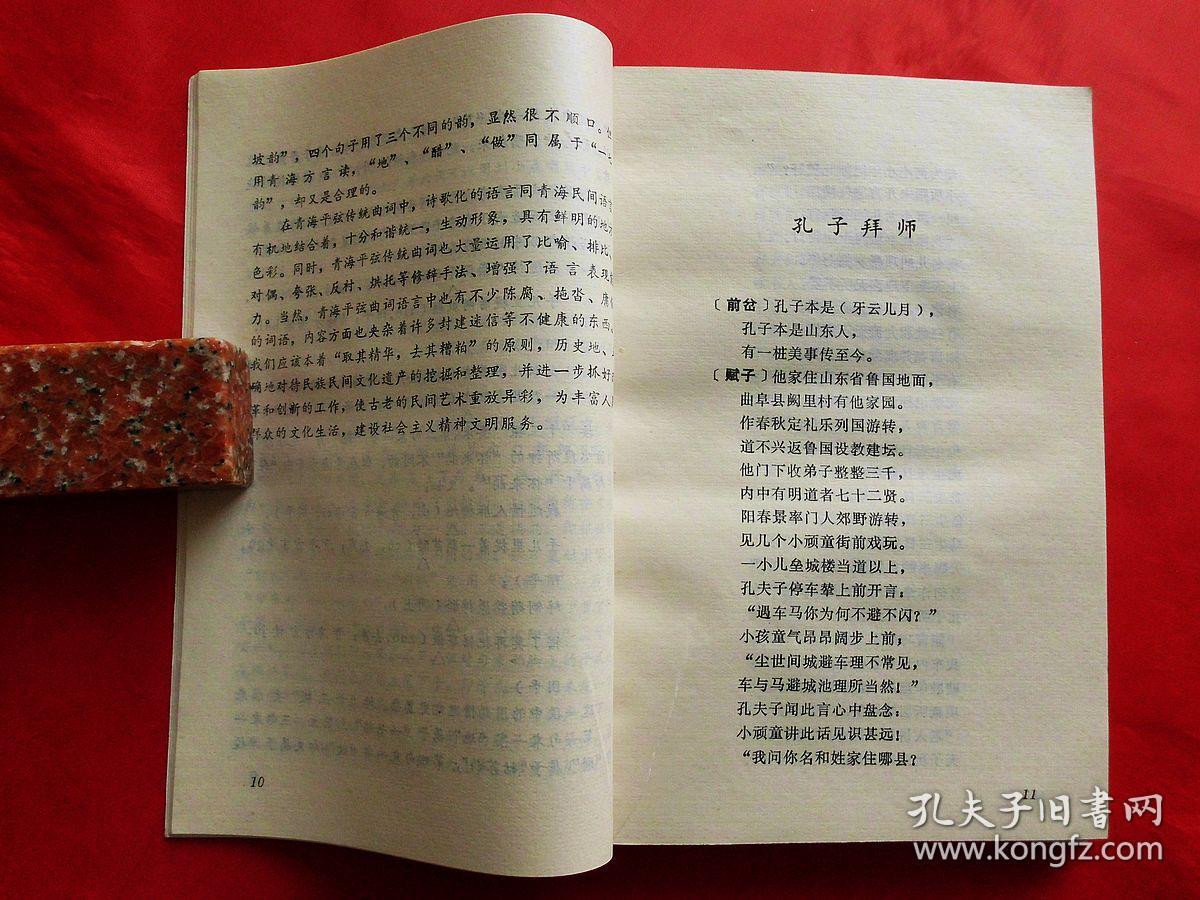 坡韵”，四个句子用了三个不同的韵，显然很不顺口。
用青海方言读，“地”、“醋”、“做”同属于“一
韵”，却又是合理的。
在青海平弦传统曲词中，诗歌化的语言同青海民间语言
有机地结合着，十分和谐统一，生动形象，具有鲜明的地方
色彩。同时，青海平弦传统曲词也大量运用了比喻、排比、
对偶、夸张、反村、烘托等修辞手法、增强了语言表现
力。当然，青海平弦曲词语言中也有不少陈腐、拖沓、庸
的词语，内容方面也夹杂着许多封建迷信等不健康的东西。
我们应该本着“取其精华，去其糟粕”的原则，历史地、
确地对待民族民间文化遗产的挖掘和整理，并进一步抓好
革和创新的工作，使古老的民间艺术重放异彩，为丰富人
群众的文化生活，建设社会主义精神文明服务。
10
孔子拜师
〔前岔〕孔子本是（牙云儿月），
孔子本是山东人，
有一桩美事传至今。
〔赋子〕他家住山东省鲁国地面，
曲阜县阙里村有他家园。
作春秋定礼乐列国游转，
道不兴返鲁国设教建坛。
他门下收弟子整整三千，
内中有明道者七十二贤。
阳春景率门人郊野游转，
见几个小顽童街前戏玩。
一小儿垒城楼当道以上，
孔夫子停车辇上前开言：
“遇车马你为何不避不闪？”
小孩童气昂昂阔步上前；
“尘世间城避车理不常见，
车与马避城池理所当然！”
孔夫子闻此言心中盘念：
小顽童讲此话见识甚远！
“我问你名和姓家住哪县？
11
孔夫子旧书网
www.kongfz.com